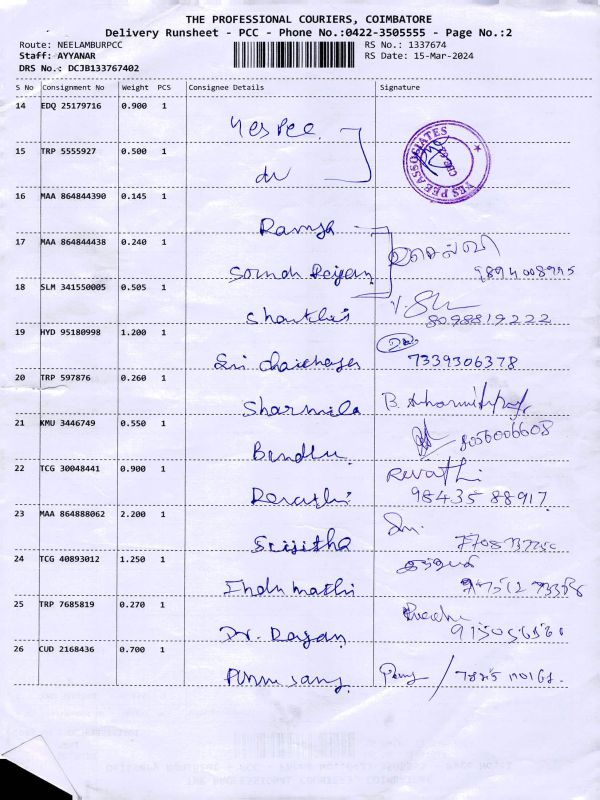 THE PROFESSIONAL COURIERS, COIMBATORE
Delivery Runsheet - PCC - Phone No.:0422-3505555 - Page No.:2
Route: NEELAMBURPCC RS No.: 1337674
Staff: AYYANAR RS Date: 15-Mar-2024
DRS No.: DCJB133767402
S No Consignment No Weight PCS Consignee Details Signature
14 EDQ 25179716 0.900 1
Yes Pee.
YES PEE ASSOCIATES
15 TRP 5555927 0.500 1
do
16 MAA 864844390 0.145 1
Ramya
17 MAA 864844438 0.240 1
18 SLM 341550005 0.505 1
8098819222
19 HYD 95180998 1.200 1
Sri
7339306378
20 TRP 597876 0.260 1
Sharmila B.
21 KMU 3446749 0.550 1
8056006608
Bindhu
22 TCG 30048441 0.900 1
Revathi
Revathi 98435 88917
23 MAA 864888062 2.200 1
Srijitha
24 TCG 40893012 1.250 1
Indu mathi
25 TRP 7685819 0.270 1
Dr. Rajan
26 CUD 2168436 0.700 1